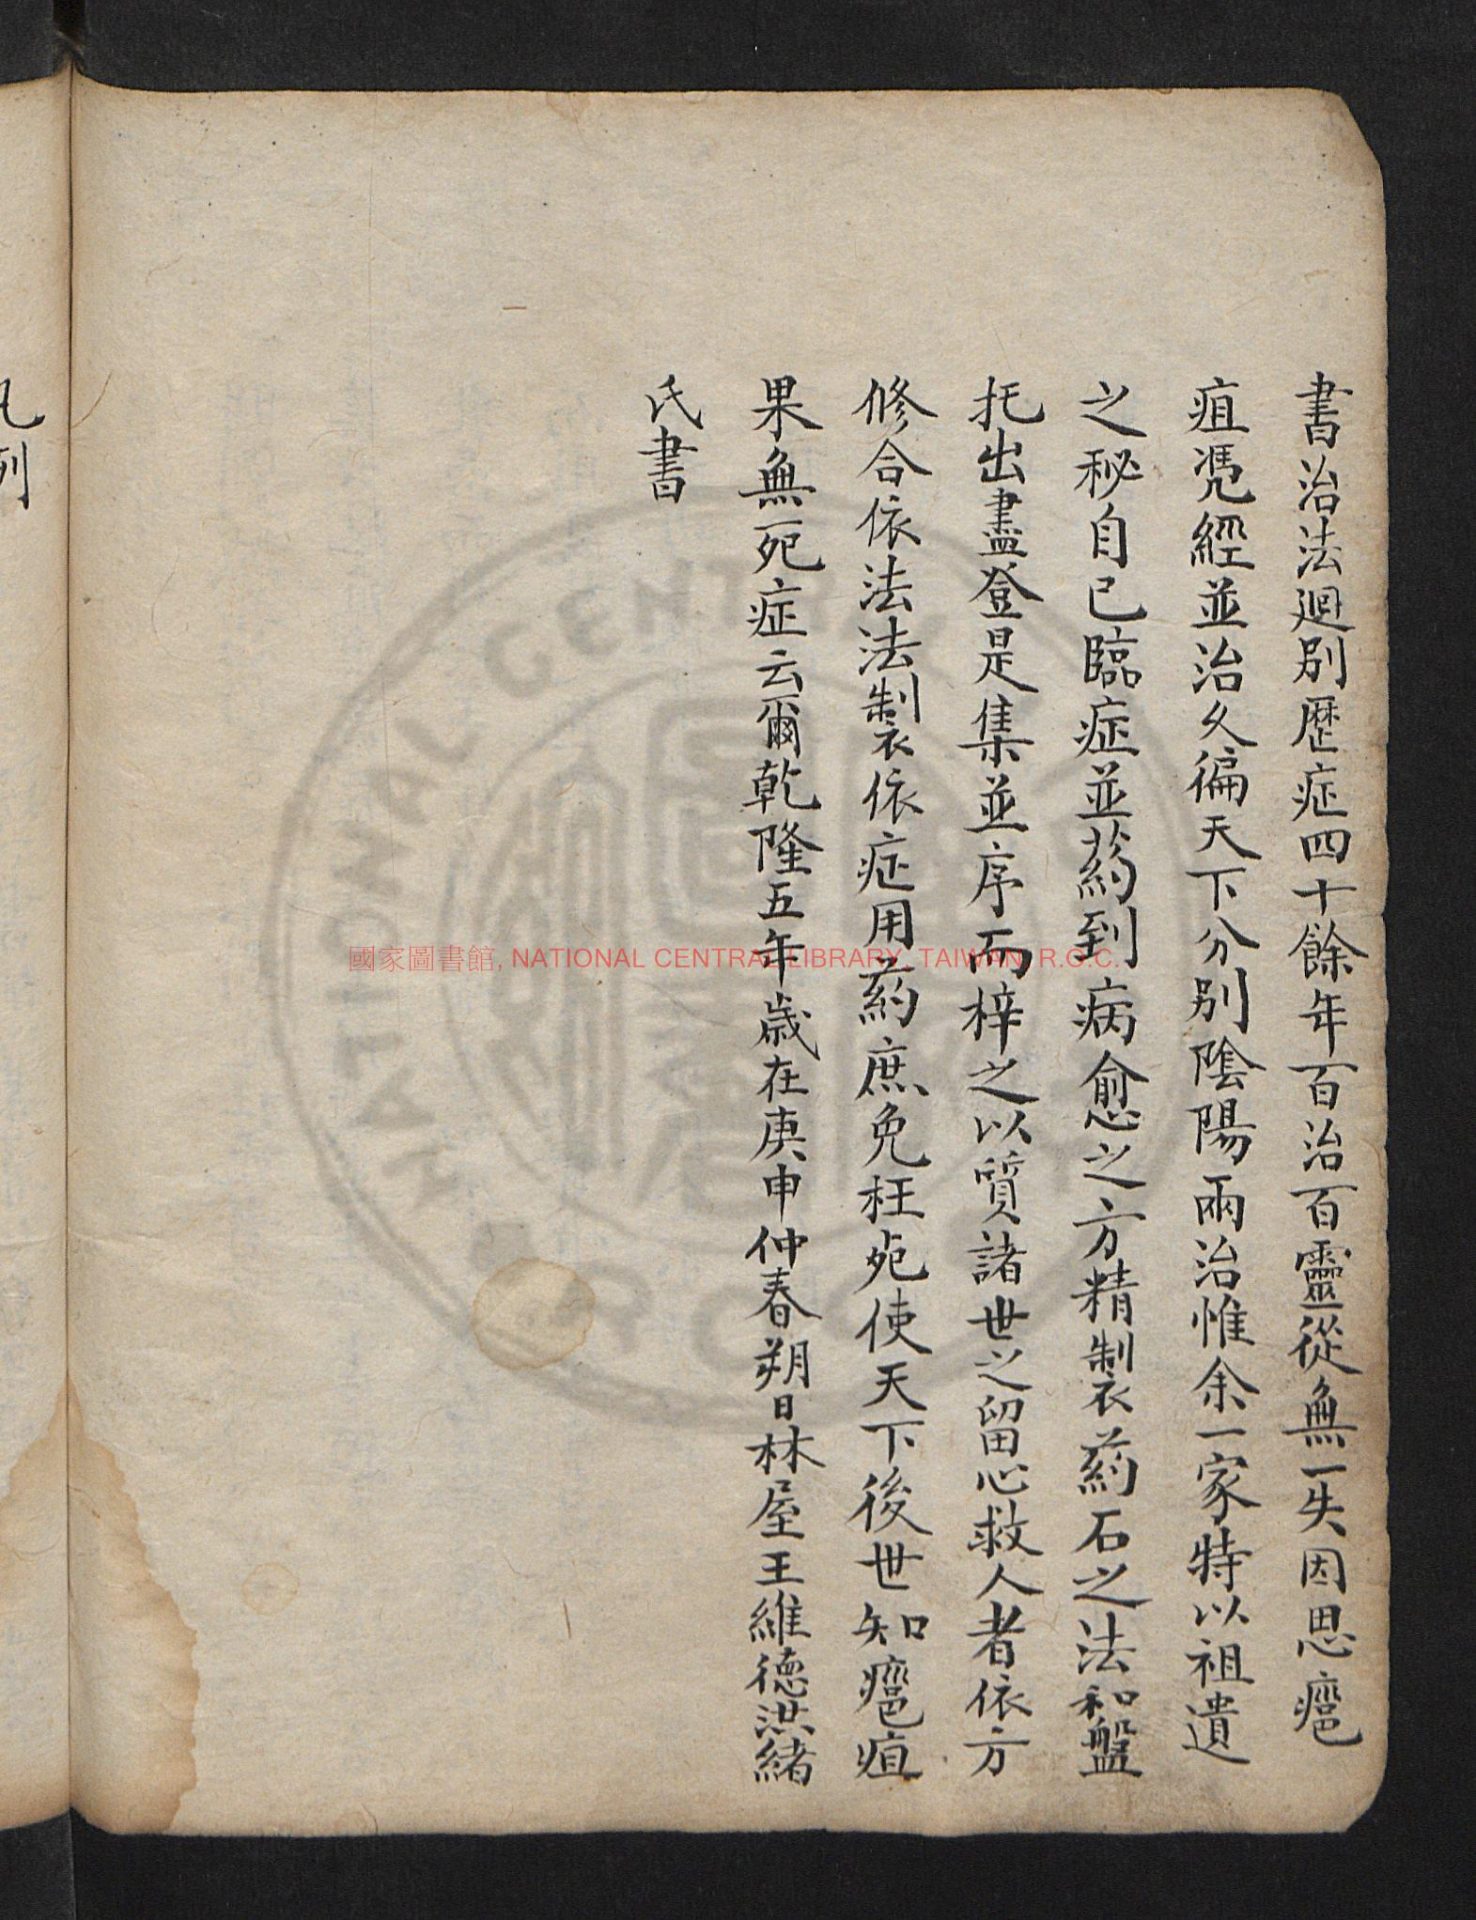 書治法迥別歷症四十餘年百治百靈從無一失因思癰
疽凴經並治久徧天下分別陰陽兩治惟余一家特以祖遺
之秘自己臨症並药到病愈之方精製药石之法和盤
托出盡登是集並序而梓之以質諸世之留心救人者依方
修合依法法製依症用药庶免枉死使天下後世知癰疽
果無一死症云爾乾隆五年歲在庚申仲春朔日林屋王維德洪緒
氏書
凡例
國家圖書館, NATIONAL CENTRAL LIBRARY, TAIWAN, R.O.C.